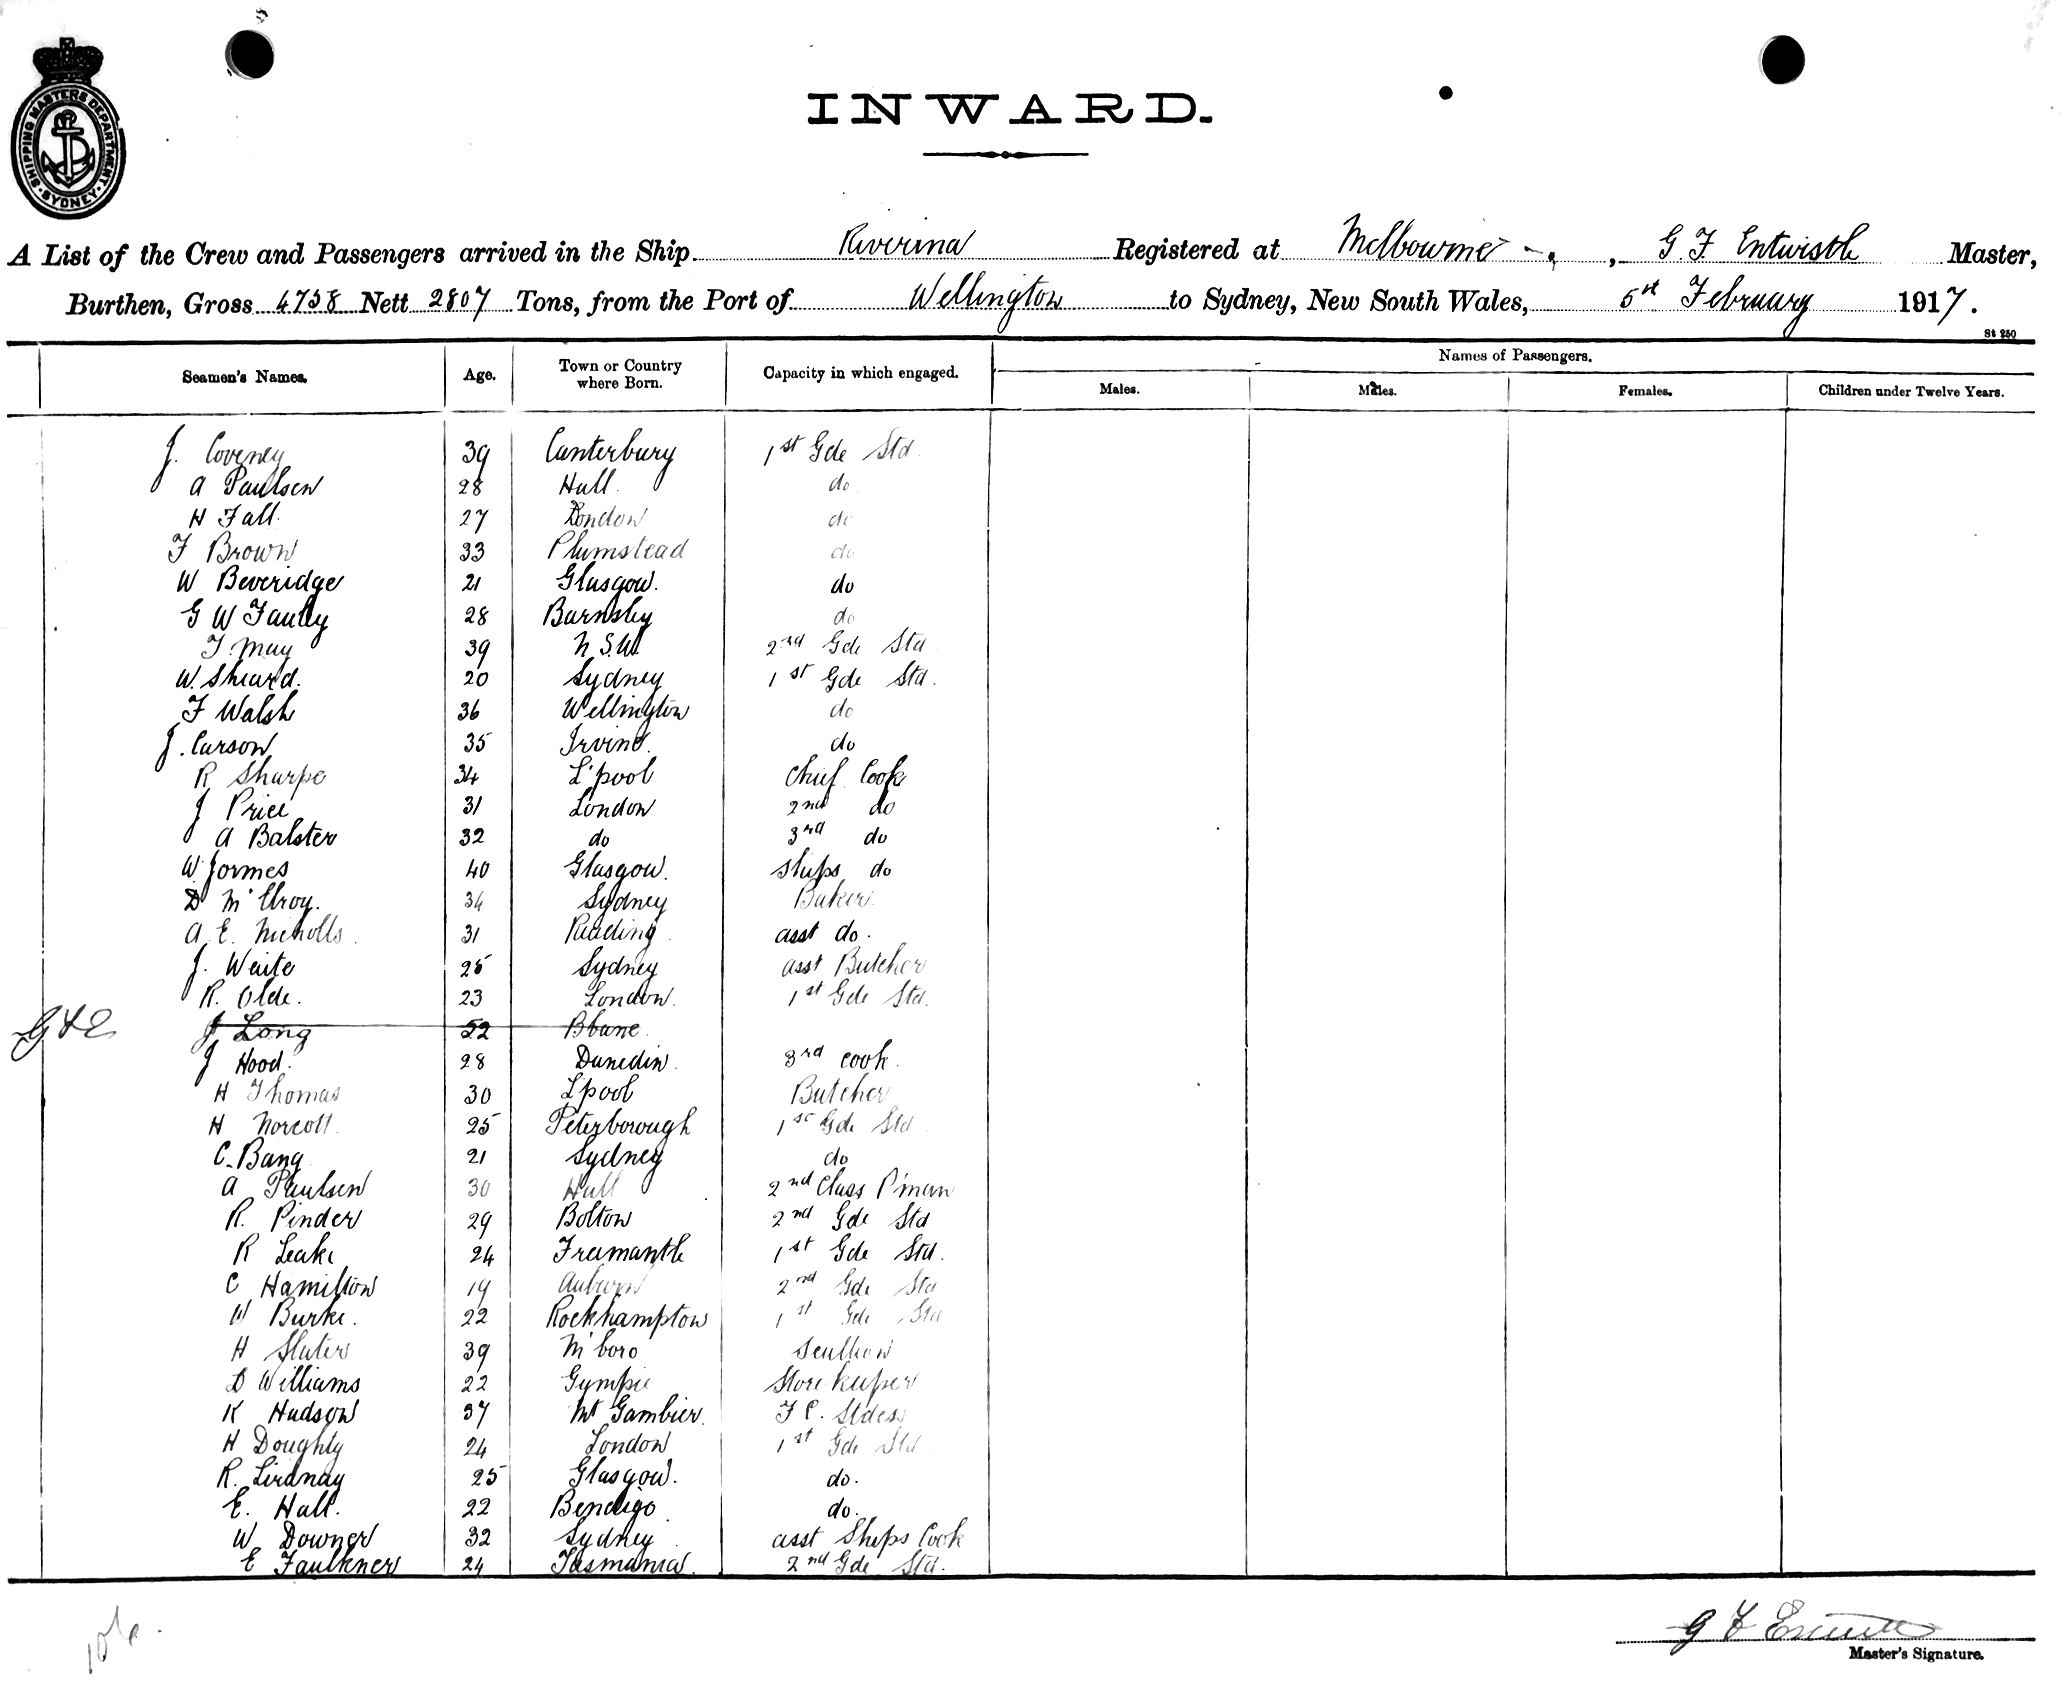 SHIPPING MASTERS DEPARTMENT · SYDNEY ·
INWARD.
A List of the Crew and Passengers arrived in the Ship Riverina Registered at Melbourne, G F Entwistle Master,
Burthen, Gross 4758 Nett 2807 Tons, from the Port of Wellington to Sydney, New South Wales, 5th February 1917.
St 250
Seamen's Names. Age. Town or Country where Born. Capacity in which engaged. Names of Passengers.
Males. Males. Females. Children under Twelve Years.
J. Coveney 39 Canterbury 1st Gde Std
A Paulsen 28 Hull do
H Fall 27 London do
F Brown 33 Plumstead do
W Beveridge 21 Glasgow. do
G W Faully 28 Barnsley do
F. May 39 N.S.W. 2nd Gde Std
W. Sheard. 20 Sydney 1st Gde Std.
F Walsh 36 Wellington do
J. Carson 35 Irvine. do
R Sharpe 34 L'pool Chief Cook
J Price 31 London 2nd do
A Balster 32 do 3rd do
W. Jormes 40 Glasgow. Ships do
D McElroy. 34 Sydney Baker
A. E. Nicholls 31 Reading asst do.
J. Waite 25 Sydney asst Butcher
R. Olde. 23 London. 1st Gde Std.
J Long 52 Bbane
J Hood. 28 Dunedin 3rd cook.
H Thomas 30 L'pool Butcher
H Norcott 25 Peterborough 1st Gde Std
C. Bang 21 Sydney do
A Paulsen 30 Hull 2nd Class P'man
R. Pinder 29 Bolton 2nd Gde Std
R Leake 24 Freemantle 1st Gde Std.
C Hamilton 19 Auburn 2nd Gde Std
W Burke. 22 Rockhampton 1st Gde Std
H Sluter 39 M'boro Scullion
D Williams 22 Gympie Storekeeper
K Hudson 37 Mt Gambier. F C. Stdess
H Doughty 24 London 1st Gde Std
R. Lindnay 25 Glasgow. do.
E. Hall. 22 Bendigo do.
W Downer 32 Sydney asst Ships Cook
E Faulkner 24 Tasmania. 2nd Gde Std.
G F Entwistle
Master's Signature.